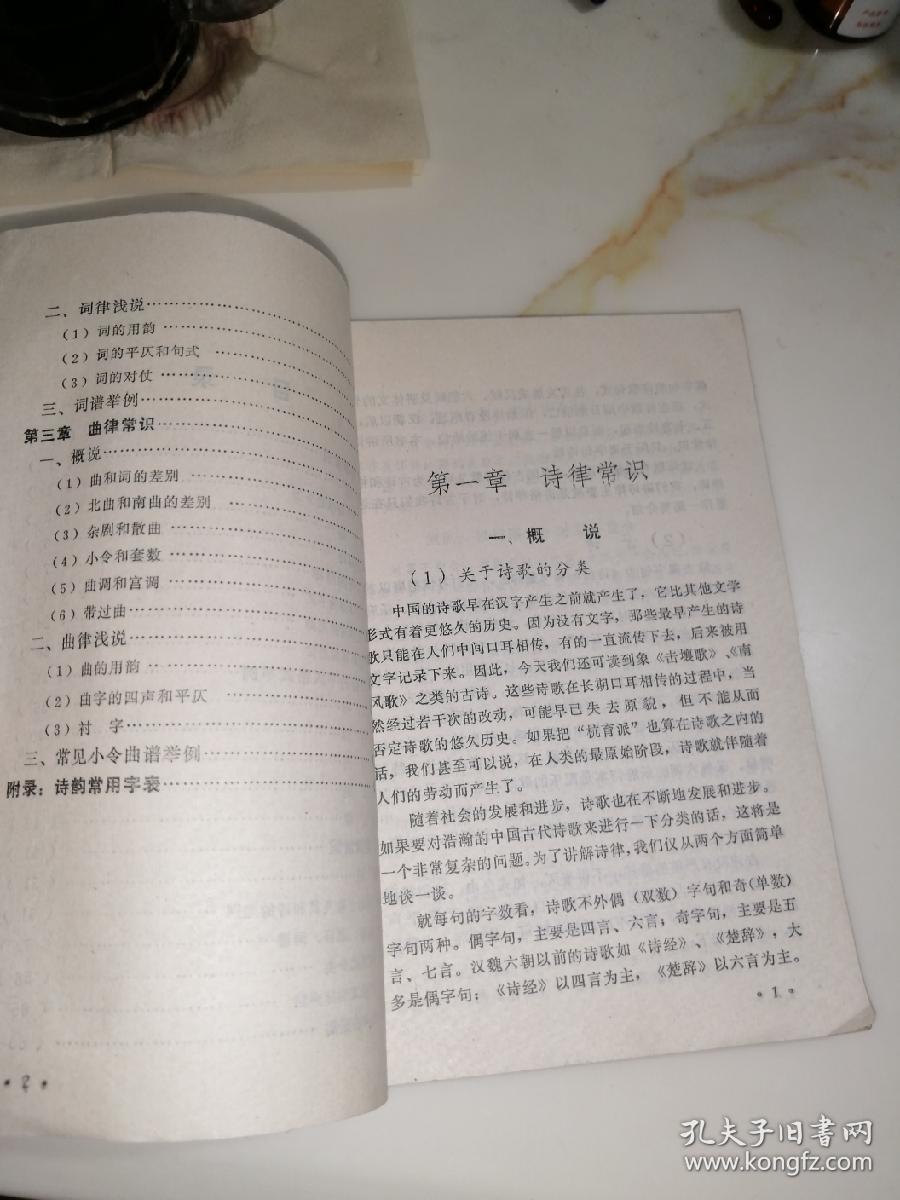 二、词律浅说
(1)词的用韵
(2)词的平仄和句式
(3)词的对仗
三、词谱举例
第三章 曲律常识
一、概说
(1)曲和词的差别
(2)北曲和南曲的差别
(3)杂剧和散曲
(4)小令和套数
(5)曲调和宫调
(6)带过曲
二、曲律浅说
(1)曲的用韵
(2)曲字的四声和平仄
(3)衬 字
三、常见小令曲谱举例
附录:诗韵常用字表
• 2 •
第一章 诗律常识
一、概 说
(1)关于诗歌的分类
中国的诗歌早在汉字产生之前就产生了,它比其他文学
形式有着更悠久的历史。因为没有文字,那些最早产生的诗
歌只能在人们中间口耳相传,有的一直流传下去,后来被用
文字记录下来。因此,今天我们还可读到象《击壤歌》、《南
风歌》之类的古诗。这些诗歌在长期口耳相传的过程中,当
然经过若干次的改动,可能早已失去原貌,但不能从而
否定诗歌的悠久历史。如果把“杭育派”也算在诗歌之内的
话,我们甚至可以说,在人类的最原始阶段,诗歌就伴随着
人们的劳动而产生了。
随着社会的发展和进步,诗歌也在不断地发展和进步。
如果要对浩瀚的中国古代诗歌来进行一下分类的话,这将是
一个非常复杂的问题。为了讲解诗律,我们仅从两个方面简单
地谈一谈。
就每句的字数看,诗歌不外偶(双数)字句和奇(单数)
字句两种。偶字句,主要是四言、六言;奇字句,主要是五
言、七言。汉魏六朝以前的诗歌如《诗经》、《楚辞》,大
多是偶字句;《诗经》以四言为主,《楚辞》以六言为主。
• 1 •
孔夫子旧书网
www.kongfz.com